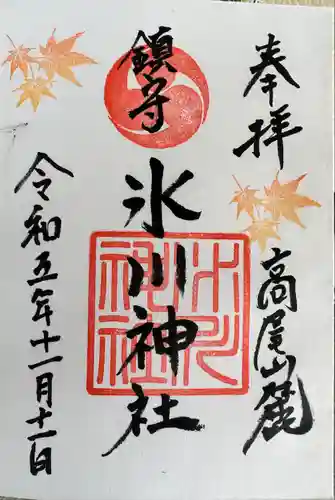 奉拝
高尾山麓
鎮守
氷川神社
氷川
神社
令和五年十一月十一日